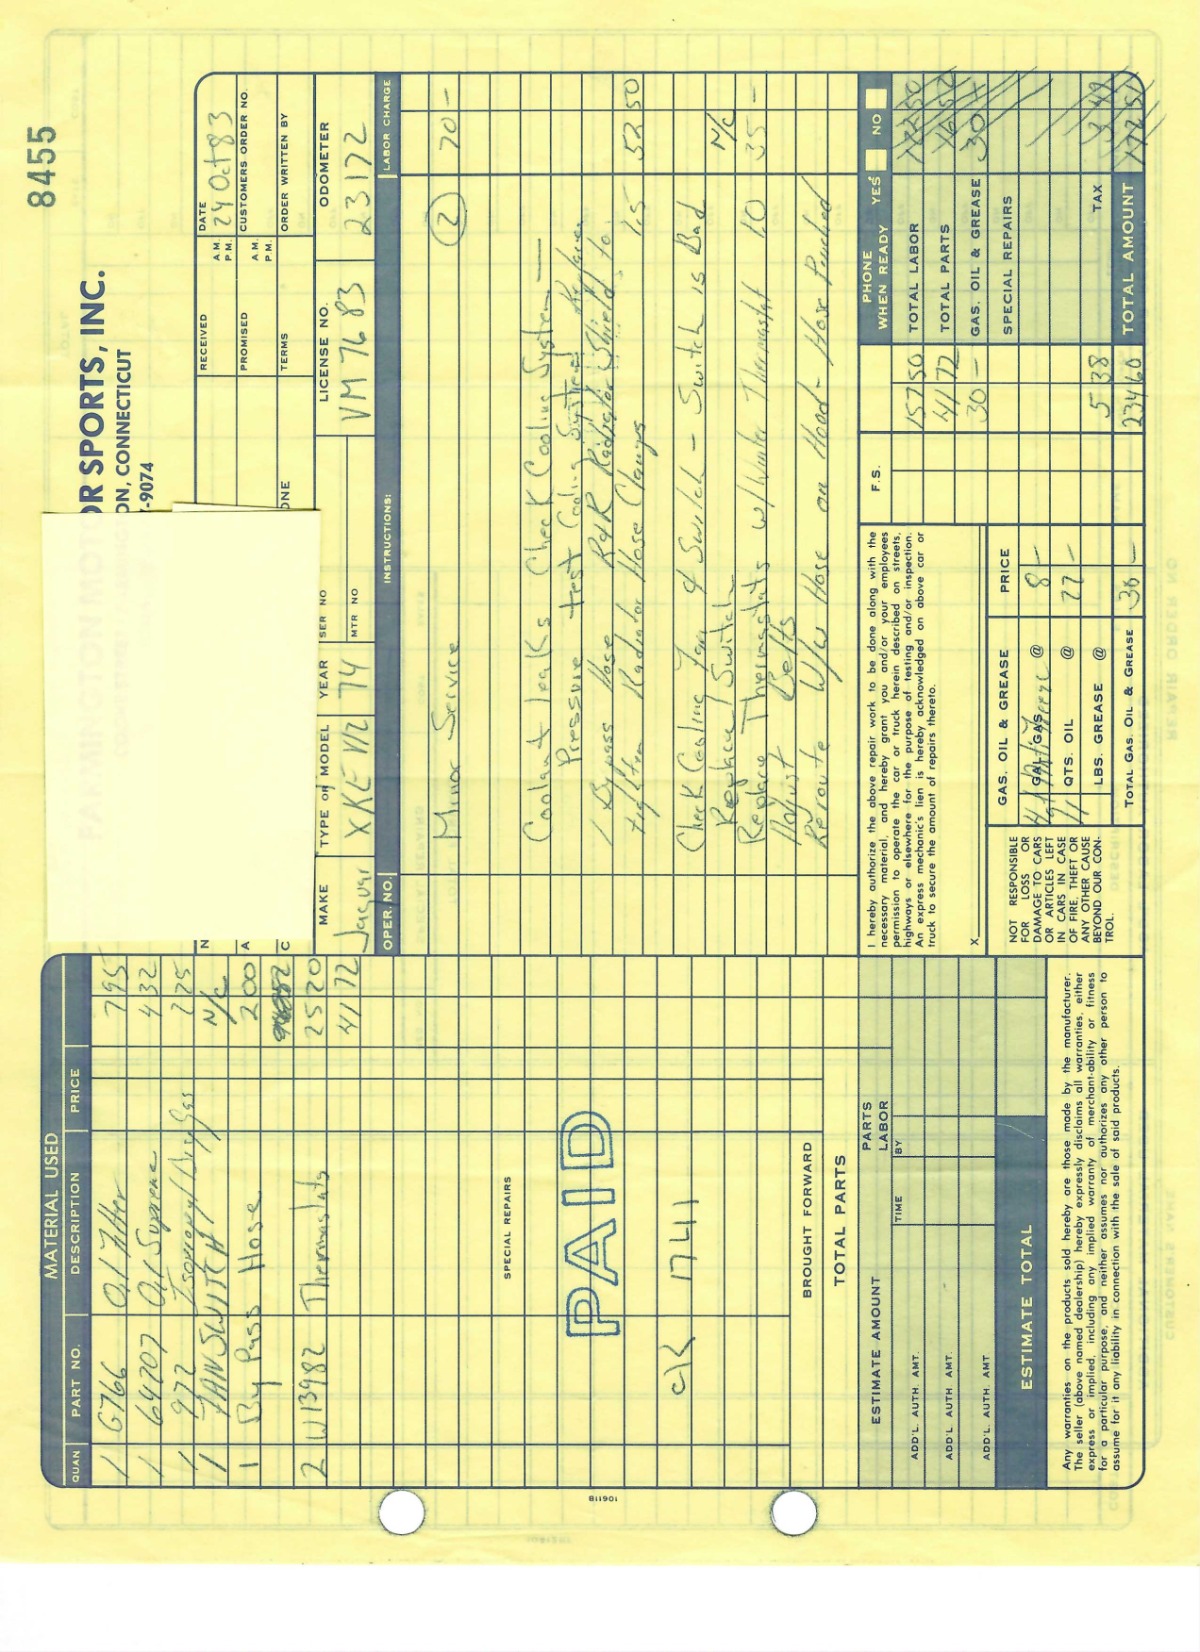 8455
OR SPORTS, INC.
ON, CONNECTICUT
-9074
RECEIVED A.M. P.M.
DATE 24 Oct 83
PROMISED A.M. P.M.
CUSTOMERS ORDER NO.
TERMS
ORDER WRITTEN BY
ONE
MAKE Jaguar
TYPE OR MODEL XKE V12
YEAR 74
SER NO
MTR NO
LICENSE NO. VM 7683
ODOMETER 23172
OPER. NO. INSTRUCTIONS: LABOR CHARGE
Minor Service (2) 70 -
Coolant leaks Check Cooling System -
Pressure test Cooling System Replace
1 Bypass Hose R&R Radiator Shield to
tighten Radiator Hose Clamps 1.5 52 50
Check Cooling Fan & Switch - Switch is Bad
Replace Switch N/C
Replace Thermostats w/ Winter Thermostat 1.0 35 -
Adjust Belts
Reroute W/W Hose on Hood - Hose Pinched
I hereby authorize the above repair work to be done along with the
necessary material, and hereby grant you and/or your employees
permission to operate the car or truck herein described on streets,
highways or elsewhere for the purpose of testing and/or inspection.
An express mechanic's lien is hereby acknowledged on above car or
truck to secure the amount of repairs thereto.
X
NOT RESPONSIBLE
FOR LOSS OR
DAMAGE TO CARS
OR ARTICLES LEFT
IN CARS IN CASE
OF FIRE, THEFT OR
ANY OTHER CAUSE
BEYOND OUR CON-
TROL.
GAS. OIL & GREASE PRICE
4 GAL. GAS @ 8 -
11 QTS. OIL @ 22 -
LBS. GREASE @
TOTAL GAS. OIL & GREASE 30 -
F.S.
PHONE WHEN READY YES NO
157 50 TOTAL LABOR
41 72 TOTAL PARTS
30 - GAS. OIL & GREASE 30 -
SPECIAL REPAIRS
5 38 TAX
234 60 TOTAL AMOUNT
MATERIAL USED
QUAN PART NO. DESCRIPTION PRICE
1 G766 Oil Filter 7 95
1 64707 Oil Supreme 4 32
1 972 2 25
1 FAN SWITCH N/C
1 By Pass Hose 2 00
2 W13982 Thermostats 25 20
41 72
SPECIAL REPAIRS
PAID
CK 1741
BROUGHT FORWARD
TOTAL PARTS
ESTIMATE AMOUNT
PARTS
LABOR
ADD'L. AUTH. AMT. TIME BY
ADD'L. AUTH. AMT.
ADD'L. AUTH. AMT
ESTIMATE TOTAL
Any warranties on the products sold hereby are those made by the manufacturer.
The seller (above named dealership) hereby expressly disclaims all warranties, either
express or implied, including any implied warranty of merchant-ability or fitness
for a particular purpose, and neither assumes nor authorizes any other person to
assume for it any liability in connection with the sale of said products.
106118